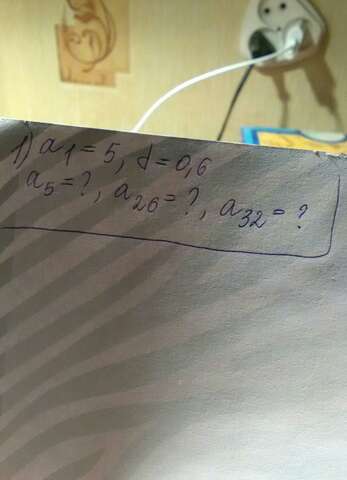 1) a1 = 5, d = 0,6
a5 = ?, a26 = ?, a32 = ?